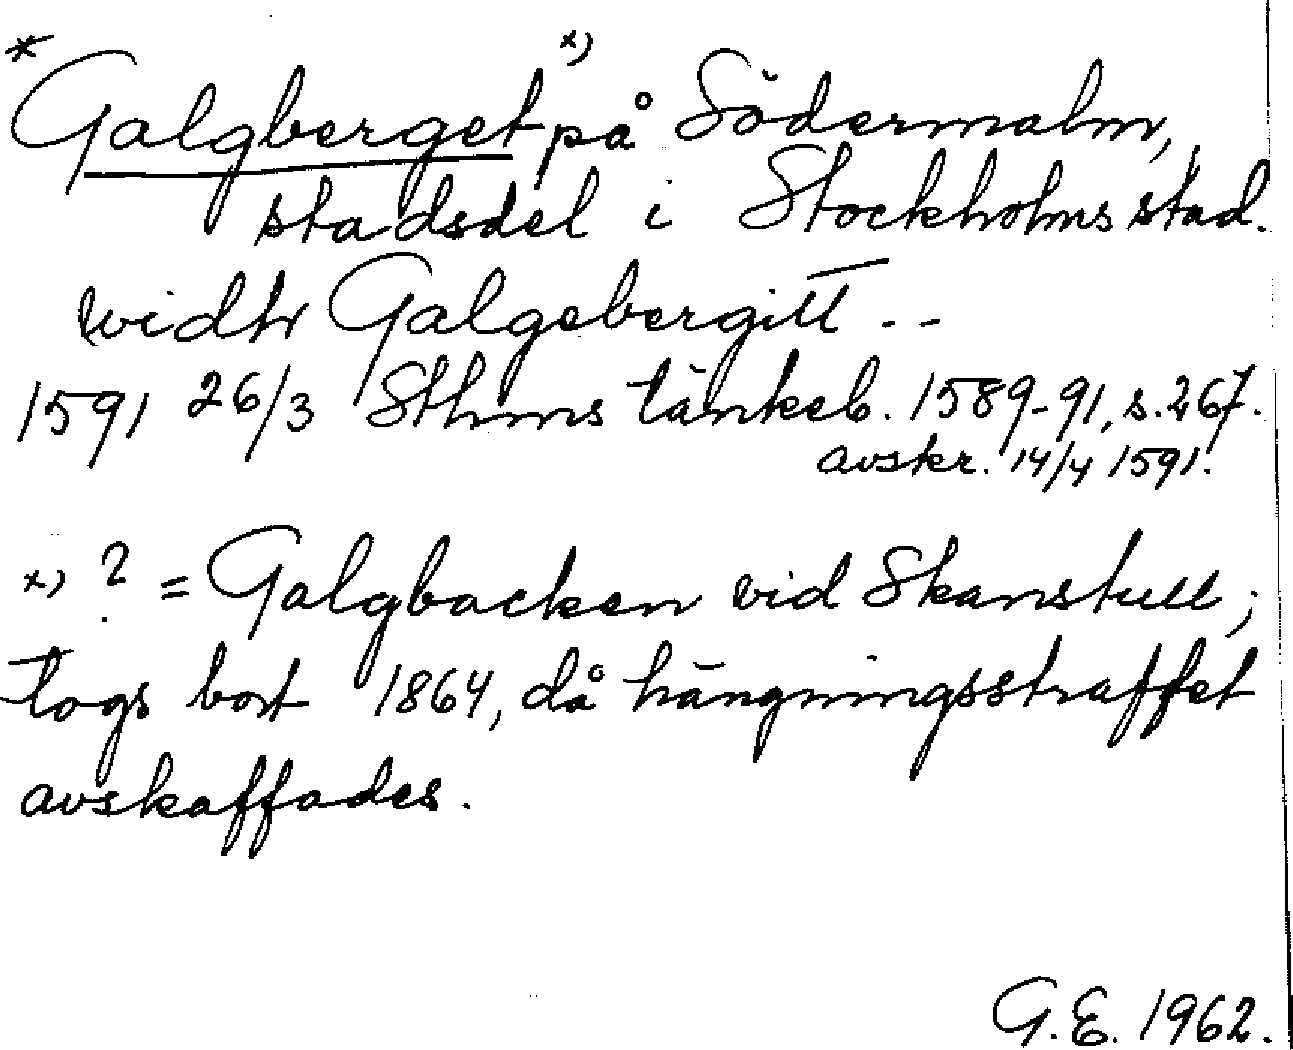 * Galgberget x) på Södermalm,
stadsdel i Stockholms stad.
widh Galgebergitt - -
1591 26/3 Sthms tänkeb. 1589-91, s. 267.
avskr. 14/4 1591.
x) ? = Galgbacken vid Skanstull;
togs bort 1864, då hängningsstraffet
avskaffades.
G.E. 1962.